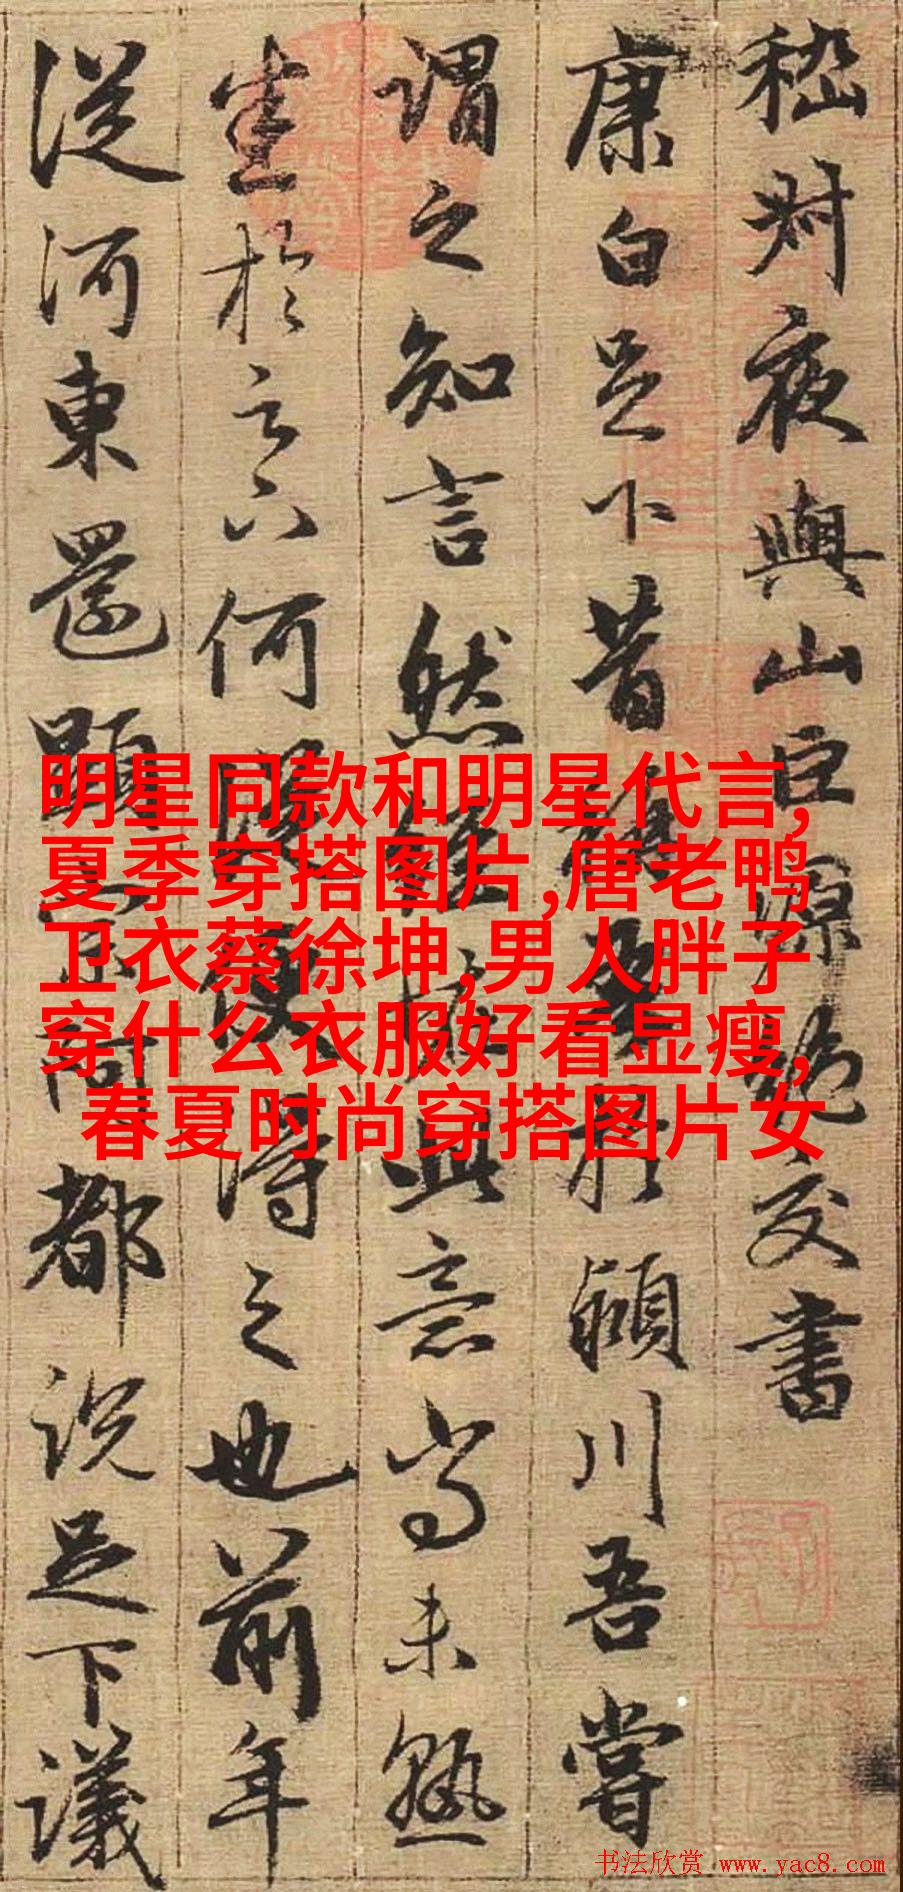 嵇叔夜與山巨源絶交書
康白足下昔稱吾於潁川吾嘗
謂之知言然經怪此意尚未熟
悉於足下何從便得之也前年
從河東還顯宗阿都説足下議
明星同款和明星代言,
夏季穿搭图片,唐老鸭
卫衣蔡徐坤,男人胖子
穿什么衣服好看显瘦,
春夏时尚穿搭图片女
书法欣赏 www.yac8.com